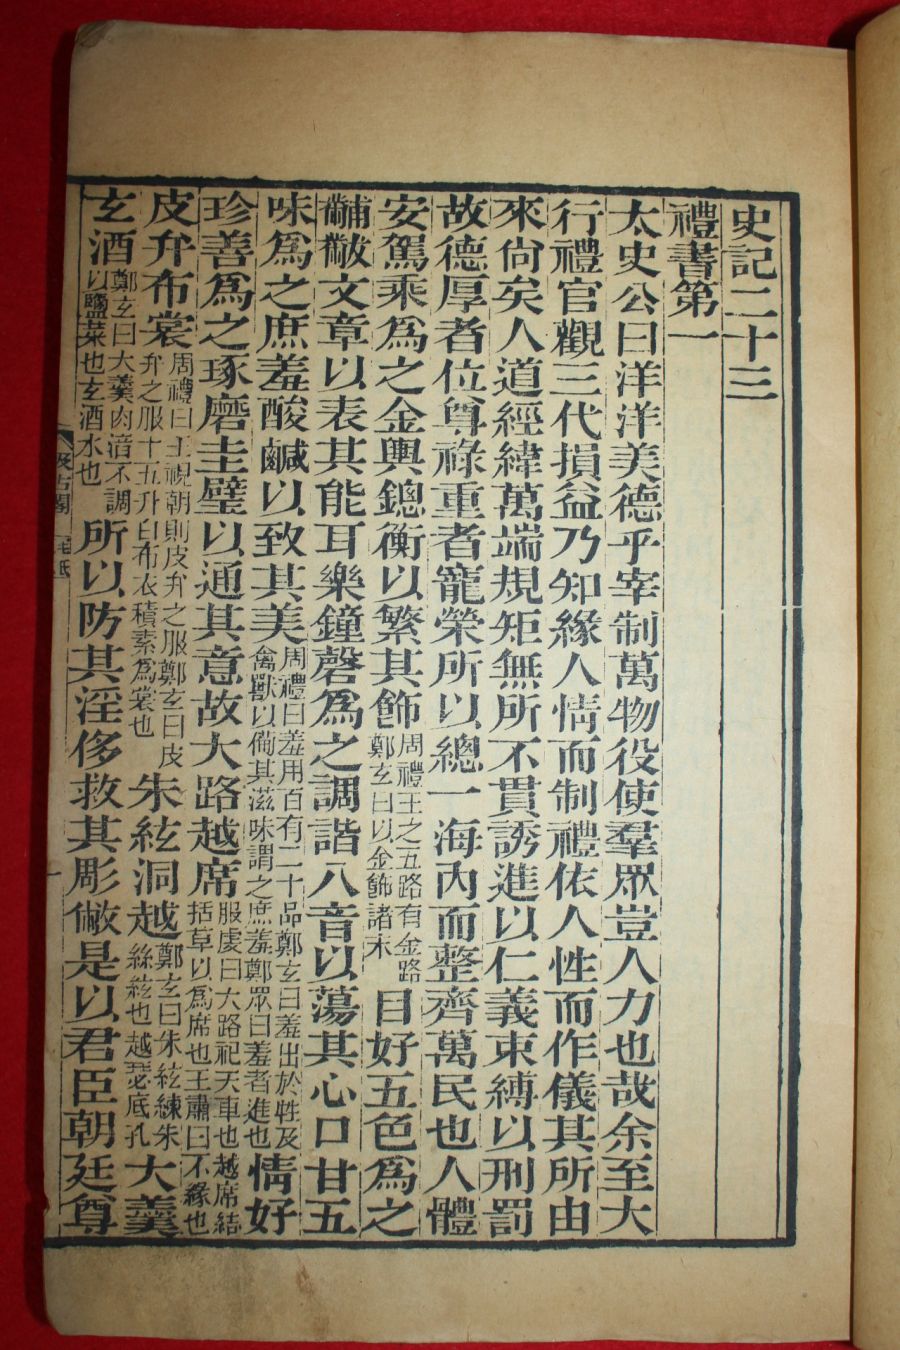 史記二十三
禮書第一
太史公曰洋洋美德乎宰制萬物役使羣眾豈人力也哉余至大
行禮官觀三代損益乃知緣人情而制禮依人性而作儀其所由
來尙矣人道經緯萬端規矩無所不貫誘進以仁義束縛以刑罰
故德厚者位尊祿重者寵榮所以總一海內而整齊萬民也人體
安駕乘為之金輿鏓衡以繁其飾周禮王之五路有金路鄭玄曰以金飾諸末目好五色為之
黼黻文章以表其能耳樂鐘磬爲之調諧八音以蕩其心口甘五
味爲之庶羞酸鹹以致其美周禮曰羞用百有二十品鄭玄曰羞出於牲及禽獸以備其滋味謂之庶羞鄭眾曰羞者進也情好
珍善爲之琢磨圭璧以通其意故大路越席服虔曰大路祀天車也越席結括草以爲席也王肅曰不緣也
皮弁布裳周禮曰王視朝則皮弁之服鄭玄曰皮弁之服十五升白布衣積素爲裳也朱絃洞越鄭玄曰朱絃練朱絲絃也越瑟底孔大羹
玄酒鄭玄曰大羹肉湇不調以鹽菜也玄酒水也所以防其淫侈救其彫敝是以君臣朝廷尊